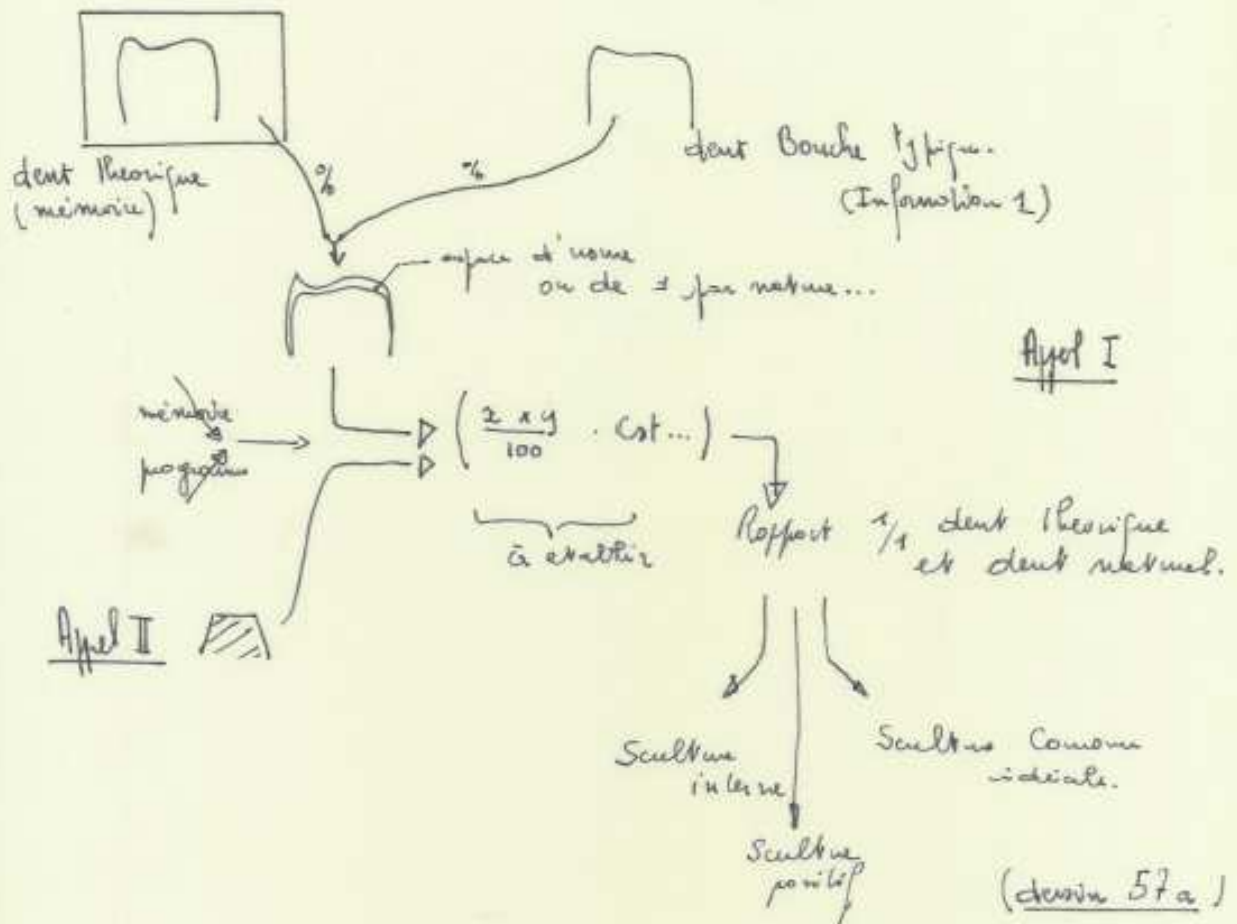 dent theorique
(mémoire)
%
%
dent Bouche Typique.
(Information 1)
espace d'usure
ou de ≠ par nature...
Appel I
mémoire
programme
( x x y / 100 . Cst... )
à etablir
Rapport 1/1 dent theorique
et dent naturel.
Appel II
Sculture
interne
Sculture
positif
Sculture Couronne
idéale.
(dessin 57a)